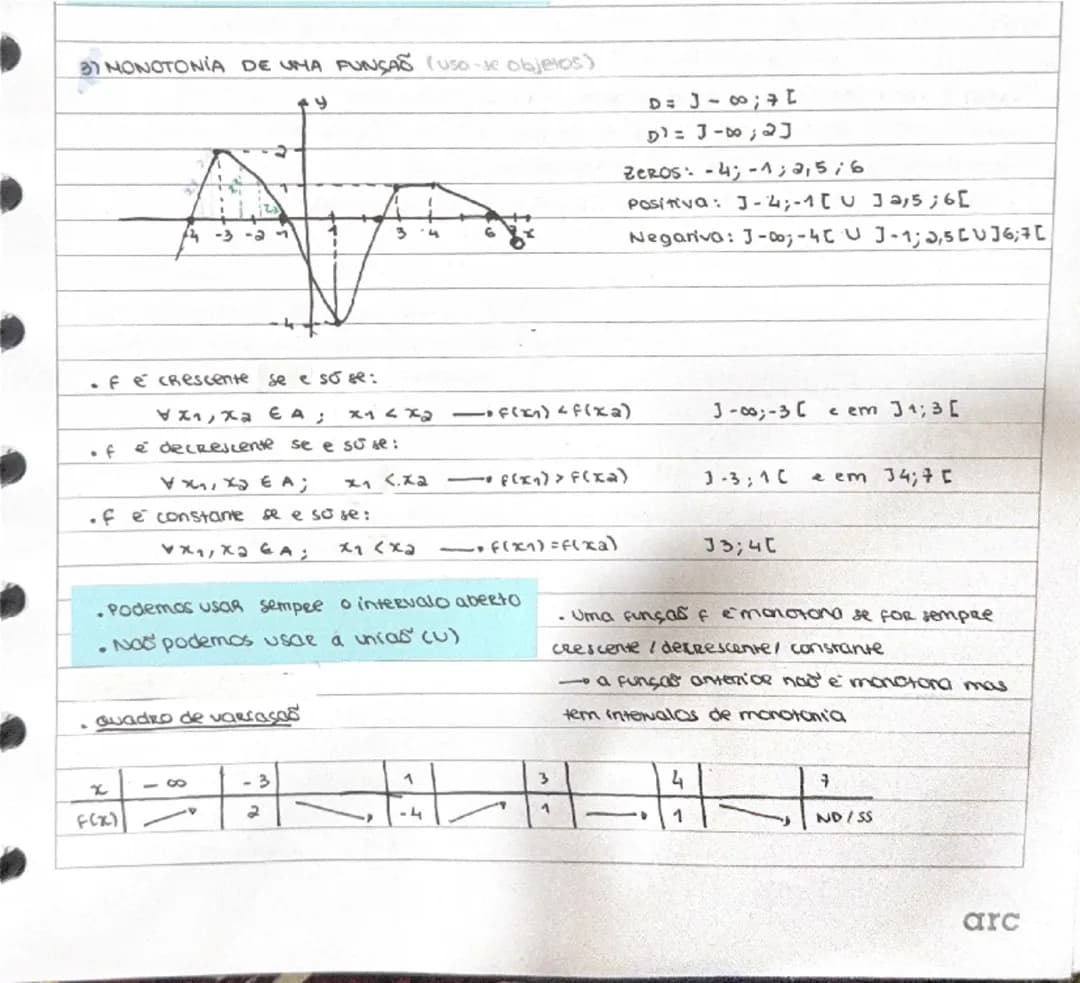 3) MONOTONIA DE UMA FUNÇÃO (usa-se objetos)
y
2
1
-4 -3 -2 -1 1 3 4 6 7 x
-4
D = ]-∞; 7[
D' = ]-∞; 2]
Zeros: -4; -1; 2,5; 6
Positiva: ]-4;-1[ U ]2,5;6[
Negativa: ]-∞;-4[ U ]-1;2,5[ U ]6;7[
• f é crescente se e só se:
∀ x1, x2 ∈ A ; x1 < x2 → f(x1) < f(x2) ]-∞;-3[ e em ]1;3[
• f é decrescente se e só se:
∀ x1, x2 ∈ A; x1 < x2 → f(x1) > f(x2) ]-3;1[ e em ]4;7[
• f é constante se e só se:
∀ x1, x2 ∈ A; x1 < x2 → f(x1) = f(x2) ]3;4[
• Podemos usar sempre o intervalo aberto
• Não podemos usar a união (U)
• Uma função f é monotona se for sempre
crescente / decrescente / constante
→ a função anterior não é monotona mas
tem intervalos de monotonia
• Quadro de variação
x -∞ -3 1 3 4 7
f(x) ↗ 2 ↘ -4 ↗ 1 → 1 ↘ ND/SS
arc